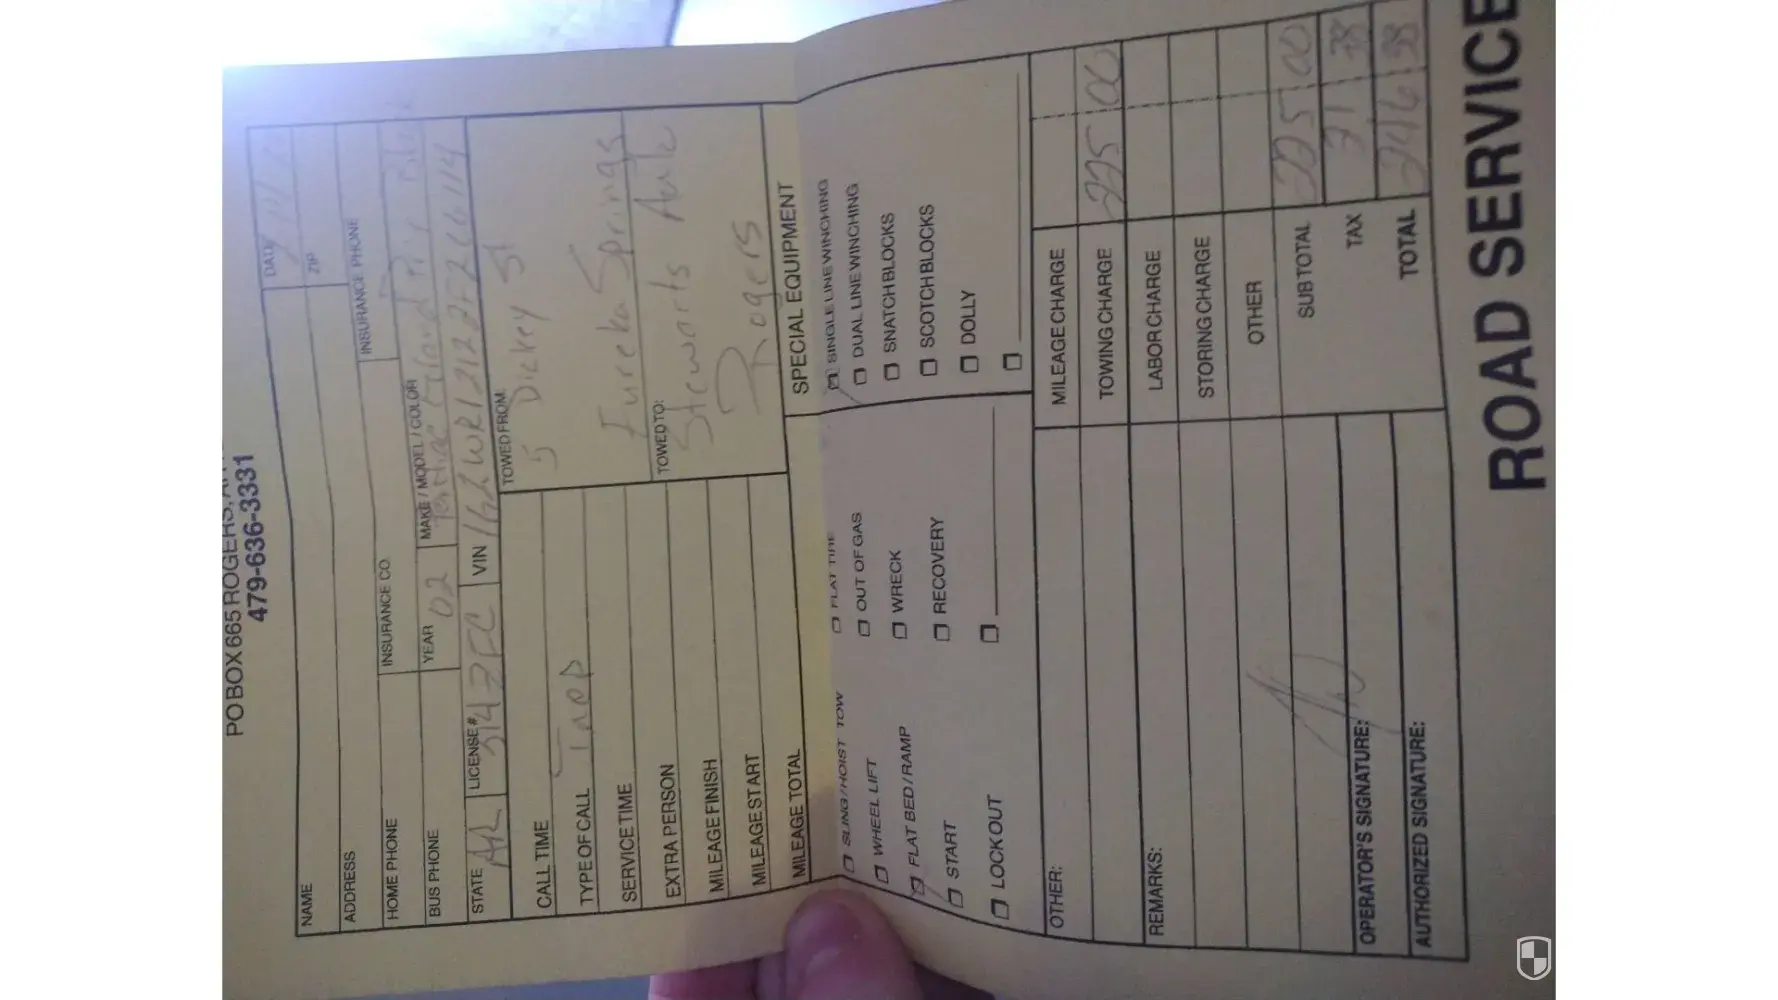 PO BOX 665 ROGERS, AR
479-636-3331
DATE
NAME
ZIP
ADDRESS
INSURANCE PHONE
HOME PHONE INSURANCE CO.
BUS PHONE YEAR 02 MAKE / MODEL / COLOR Pontiac Grand Prix
STATE AR LICENSE# 314ZFC VIN 1G2WR12122F266114
CALL TIME
TOWED FROM:
5 Dickey St
Eureka Springs
TYPE OF CALL Imp
SERVICE TIME
EXTRA PERSON
TOWED TO:
Stewarts Auto
Rogers
MILEAGE FINISH
MILEAGE START
MILEAGE TOTAL
SPECIAL EQUIPMENT
SLING / HOIST TOW FLAT TIRE SINGLE LINE WINCHING
WHEEL LIFT OUT OF GAS DUAL LINE WINCHING
FLAT BED / RAMP WRECK SNATCH BLOCKS
START RECOVERY SCOTCH BLOCKS
LOCK OUT DOLLY
OTHER: MILEAGE CHARGE
TOWING CHARGE 225 00
REMARKS: LABOR CHARGE
STORING CHARGE
OTHER
SUBTOTAL 225 00
OPERATOR'S SIGNATURE: TAX 21 38
AUTHORIZED SIGNATURE: TOTAL 246 38
ROAD SERVICE